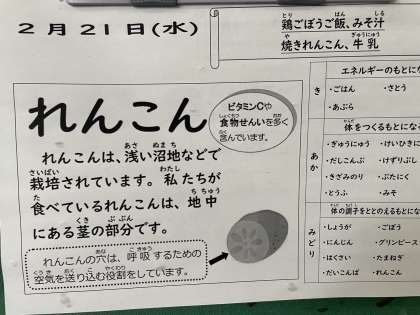 2月21日(水)
鶏ごぼうご飯、みそ汁
焼きれんこん、牛乳
れんこん
ビタミンCや
食物せんいを多く
含んでいます。
れんこんは、浅い沼地などで
栽培されています。私たちが
食べているれんこんは、地中
にある茎の部分です。
れんこんの穴は、呼吸するための
空気を送り込む役割をしています。
エネルギーのもとにな
き
・ごはん ・さとう
・あぶら
体をつくるもとにな
あか
・ぎゅうにゅう ・けいひきに
・だしこんぶ ・けずりぶし
・きざみのり ・ぶたにく
・とうふ ・みそ
体の調子をととのえるもとにな
みどり
・しょうが ・ごぼう
・にんじん ・グリンピース
・はくさい ・たまねぎ
・だいこんば ・れんこん